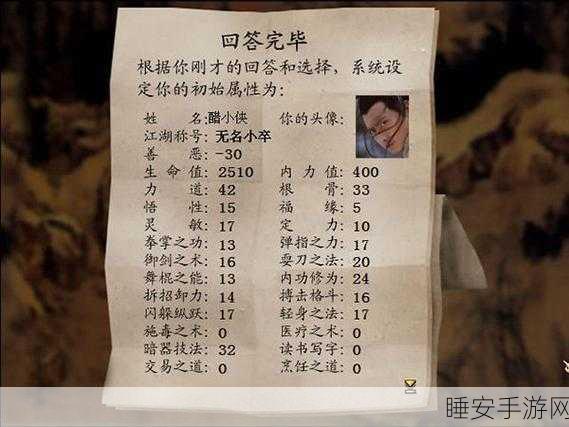 回答完毕
根据你刚才的回答和选择，系统设
定你的初始属性为：
姓名：醋小侠 你的头像：
江湖称号：无名小卒
善恶：-30
生命值：2510 内力值：400
力道：42 根骨：33
悟性：15 福缘：5
灵敏：17 定力：10
拳掌之功：13 弹指之力：17
御剑之术：16 耍刀之法：20
舞棍之能：13 内功修为：24
拆招卸力：14 搏击格斗：16
闪躲纵跃：17 轻身之法：17
施毒之术：0 医疗之术：0
暗器技法：32 读书写字：0
交易之道：0 烹饪之道：0
睡安手游网